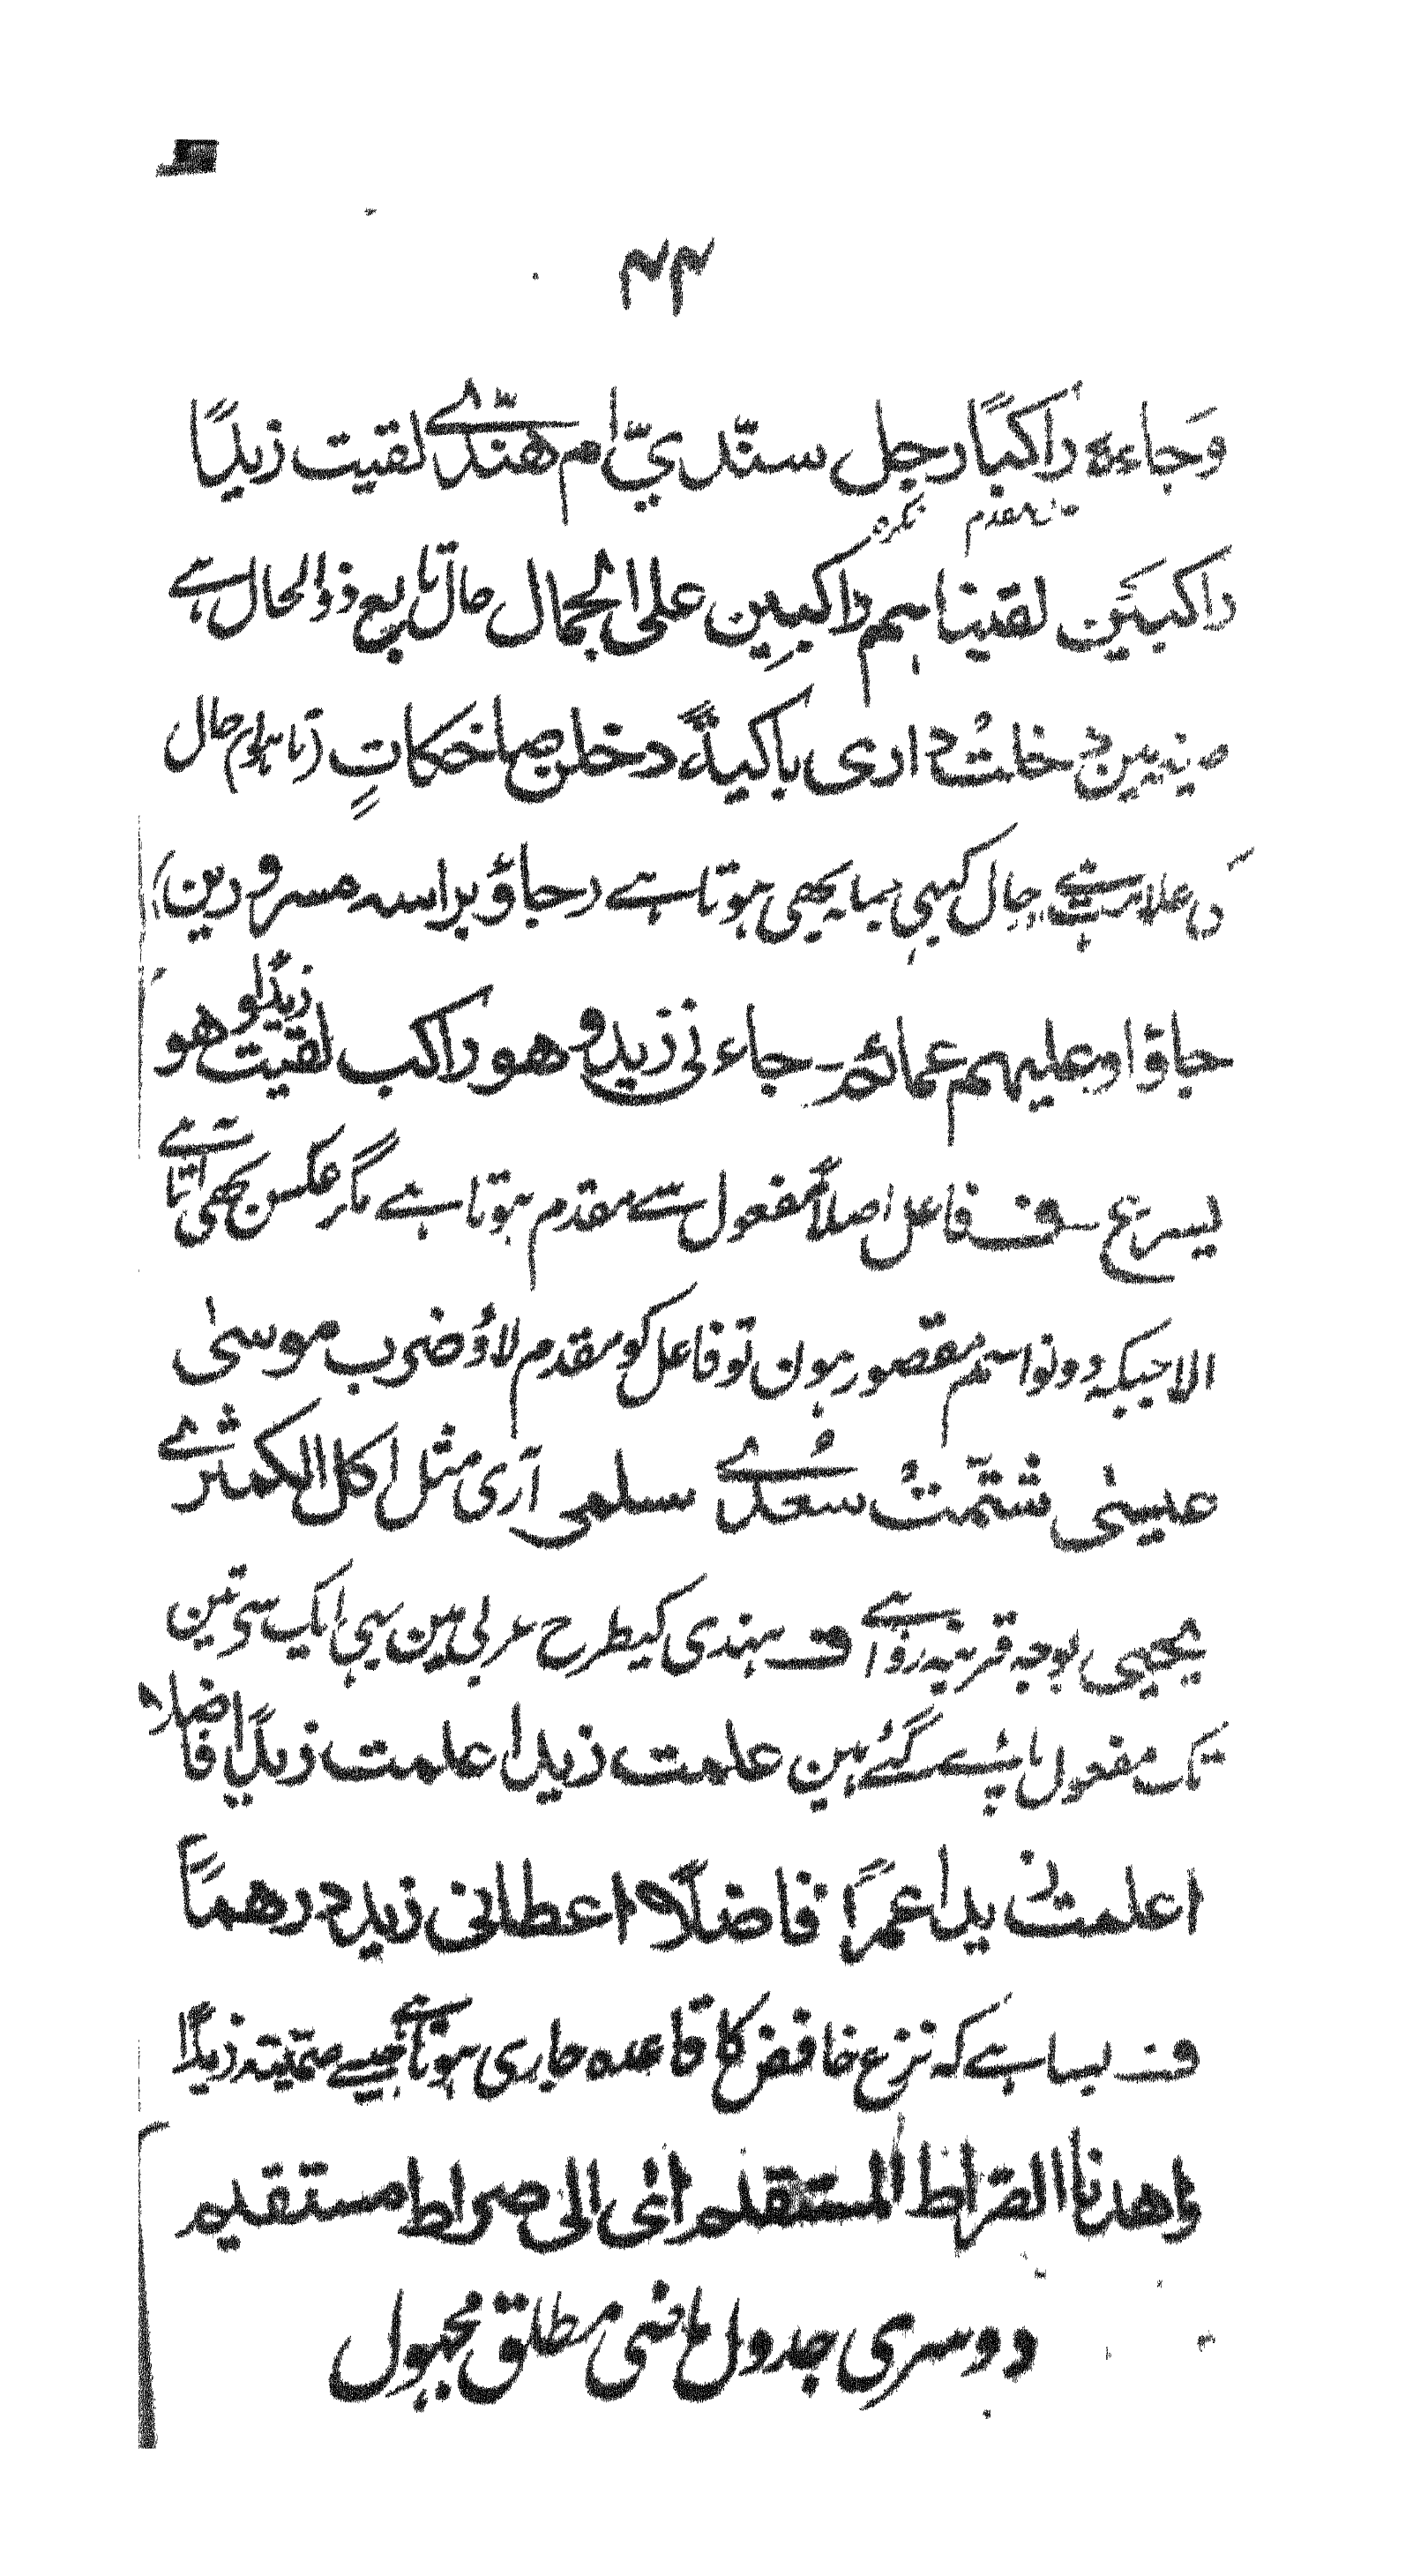 ۴۴
وَجاءه راكبًا رجل سنّديّ ام هنّدے لقيت زيدًا
مقدم نکرہ
راكبَين لقينا ہم راكبِين على الجمال حال تابع ذوالحال ہے
صیغہ مین دخلتُ داری باكيةً دخلن ضاحكاتٍ حال
کی علامت ہے حال کبہی جملہ بھی ہوتا ہے دجاؤ براسه مسرورین
جاؤا وعليهم عمائم جاءنی زيد وهو راكب لقيت زيدًا وهو
يسرع ف فاعل اصلاً مفعول سے مقدم ہوتا ہے مگر عکس بھی آتا ہے
الا جبکہ دونو اسم مقصور ہون تو فاعل کو مقدم لاؤ ضرب موسیٰ
عیسیٰ شتمتْ سُعدے سلمی آری مثل اكل الكمثرے
یحیی بوجہ قرینہ روا ہے ف ہندی کیطرح عربی مین بہی ایک سی تین
تک مفعول پائے گئے ہین علمت زيدا علمت زيدًا فاضلا
اعلمت زيدا عمرًا فاضلًا اعطانی زيد درهمًا
ف بسا ہے کہ نزع خافض کا قاعدہ جاری ہوتا ہے جیسے سمّیته زيدًا
واهدنا الصراط المستقیم ای الی صراط مستقیم
دوسری جدول ماضی مطلق مجہول